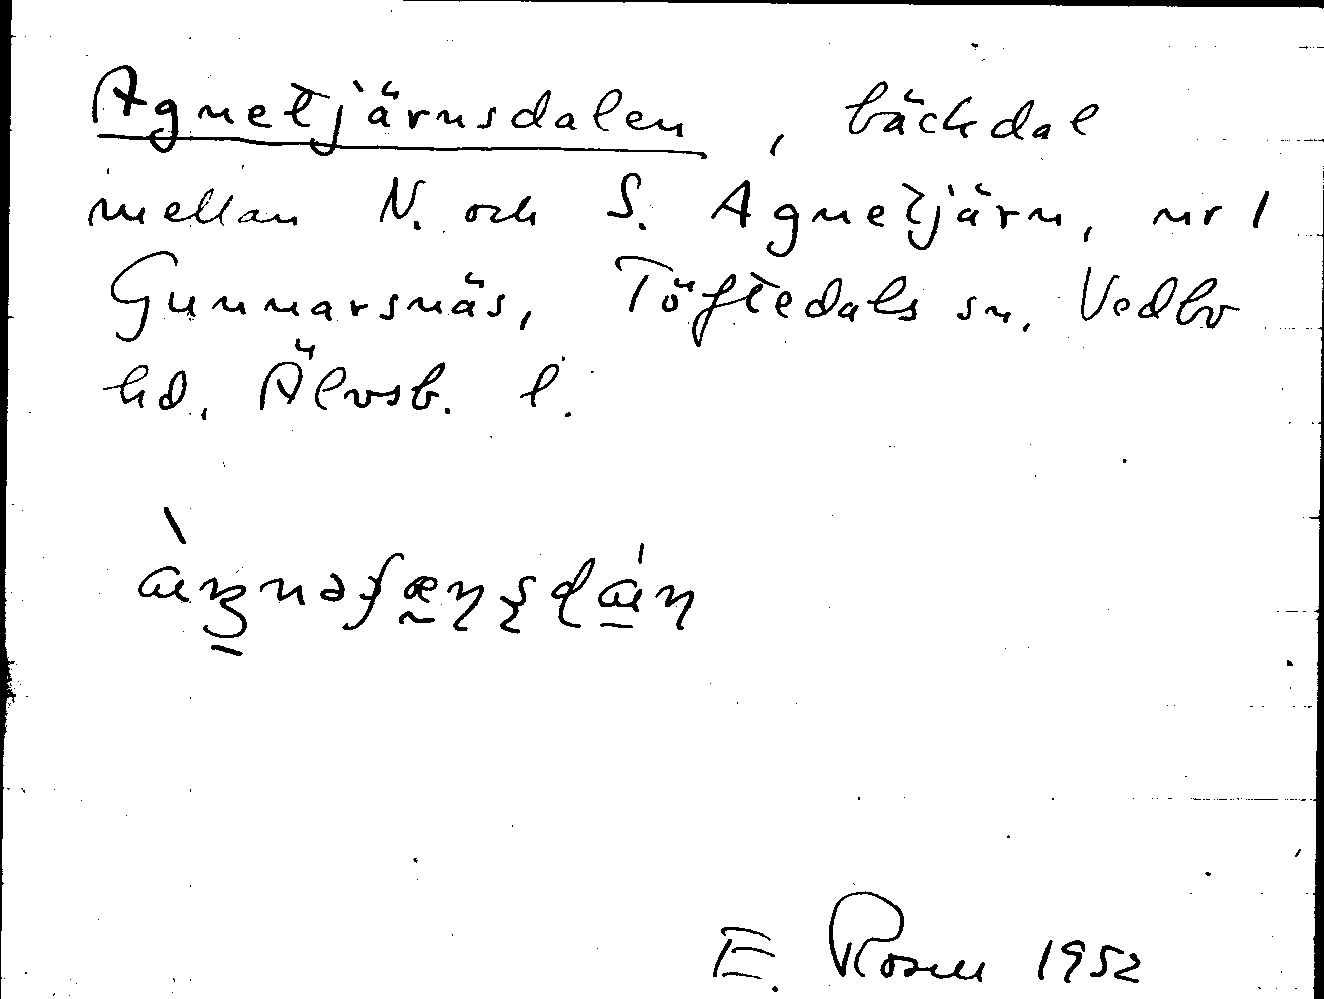 Agnetjärnsdalen, bäckdal
mellan N. och S. Agnetjärn, nr 1
Gunnarsnäs, Töftedals sn. Vedbo
hd. Älvsb. l.
E. Rosell 1952